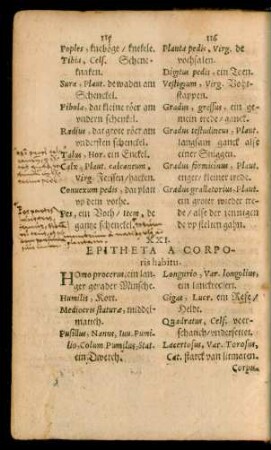 115
116
Poples, kneböge/ knekele.
Tibia, Cels. Schene-
knaken.
Sura, Plaut. de waden am
Schenckel.
Fibola, dat kleine rör am
vndern schenkel.
Radius, dat grote rör am
vndersten schenckel.
Talus, Hor. ein Enckel.
Calx, Plaut. calcaneum,
Virg. Fersen/ hacken.
Conuexum pedis, dat platt
vp dem vothe.
Pes, ein Voth/ item, de
gantze schenckel.
Planta pedis, Virg. de
vothsalen.
Digitus pedis, ein Teen.
Vestigium, Virg. Voht-
stappen.
Gradus, gressus, ein ge-
mein trede/ ganck.
Gradus testudineus, Plaut.
langsam ganck alse
einer Sniggen.
Gradus formicinus, Plaut.
enger/ kleiner trede.
Gradus grallatorius, Plaut.
ein groter wieder tre-
de/ alse der yennigen
de vp stelten gahn.
XXI.
EPITHETA A CORPO-
ris habitu.
Homo procerus, ein lan-
ger gerader Minsche.
Humilis, Kort.
Mediocris statura, middel-
matich.
Pusillus, Nanus, Iuu. Pumi-
lio, Colum. Pumilus, Stat.
ein Dwerch.
Longurio, Var. longolius,
ein lanckrester.
Gigas, Lucr. ein Rese/
Heldt.
Quadratus, Cels. veer-
schanch/ vndersettet.
Lacertosus, Var. Torosus,
Cat. starck van litmaten.
Corpu-